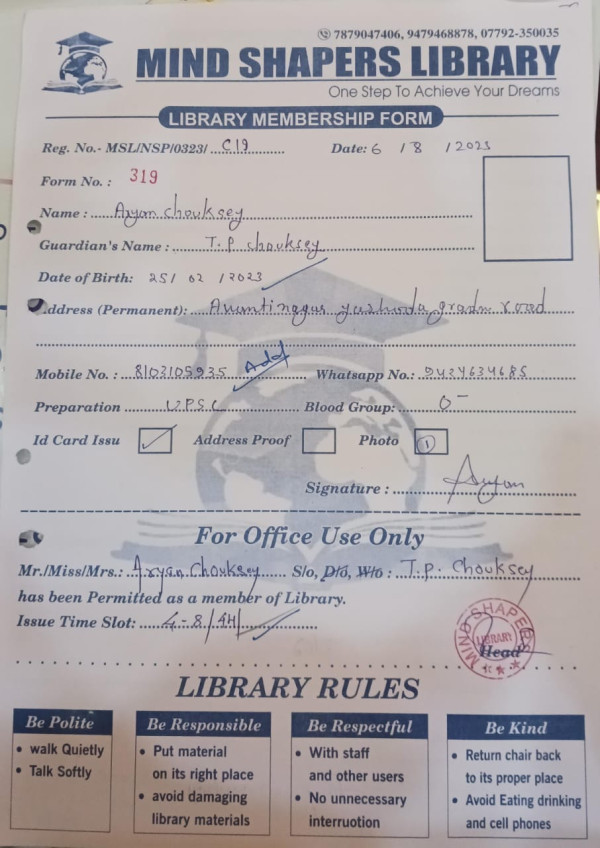 7879047406, 9479468878, 07792-350035
MIND SHAPERS LIBRARY
One Step To Achieve Your Dreams
LIBRARY MEMBERSHIP FORM
Reg. No.- MSL/NSP/0323/ C19 Date: 6 / 8 / 2023
Form No. : 319
Name : Aryan Chouksey
Guardian's Name : T.P chouksey
Date of Birth: 25/ 02 / 2023
Address (Permanent): Avantinagar yashoda road
Mobile No. : 8103105935 Add Whatsapp No.: 9424634685
Preparation UPSC Blood Group: O-
Id Card Issu Address Proof Photo 1
Signature : Aryan
For Office Use Only
Mr./Miss/Mrs.: Aryan Chouksey S/o, D/o, W/o : T.P. Chouksey
has been Permitted as a member of Library.
Issue Time Slot: 4-8/4H/
MIND SHAPERS
LIBRARY
Head
LIBRARY RULES
Be Polite
• walk Quietly
• Talk Softly
Be Responsible
• Put material
on its right place
• avoid damaging
library materials
Be Respectful
• With staff
and other users
• No unnecessary
interruotion
Be Kind
• Return chair back
to its proper place
• Avoid Eating drinking
and cell phones